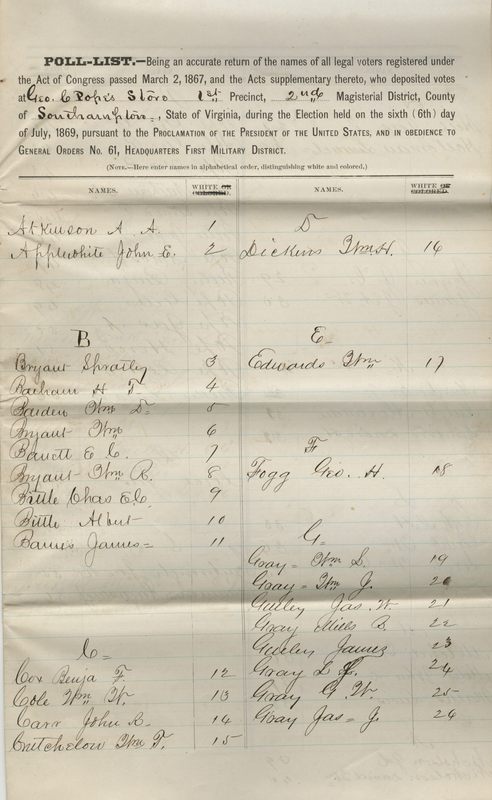 POLL-LIST.—Being an accurate return of the names of all legal voters registered under
the Act of Congress passed March 2, 1867, and the Acts supplementary thereto, who deposited votes
at Geo. C Pope's Store 1st Precinct, 2nd Magisterial District, County
of Southampton, State of Virginia, during the Election held on the sixth (6th) day
of July, 1869, pursuant to the PROCLAMATION OF THE PRESIDENT OF THE UNITED STATES, AND IN OBEDIENCE TO
GENERAL ORDERS No. 61, HEADQUARTERS FIRST MILITARY DISTRICT.
(NOTE.—Here enter names in alphabetical order, distinguishing white and colored.)
NAMES. WHITE OR COLORED.
Atkinson A. A. 1
Applewhite John E. 2
B
Bryant Spratley 3
Barham H T. 4
Barden Wm D= 5
Bryant Wm 6
Barrett E C. 7
Bryant Wm R. 8
Bittle Chas E.C. 9
Bittle Albert 10
Barnes James= 11
C=
Cox Benja F. 12
Cole Wm W. 13
Carr John R. 14
Critchelow Wm T. 15
NAMES. WHITE OR COLORED.
D
Dickins Wm H. 16
E
Edwards Wm 17
F
Fogg Geo. H. 18
G=
Gray= Wm S. 19
Gray= Wm J. 20
Gurley Jas. W. 21
Gray Mills B. 22
Gurley James 23
Gray L 24
Gray G. W. 25
Gray Jas= J. 26